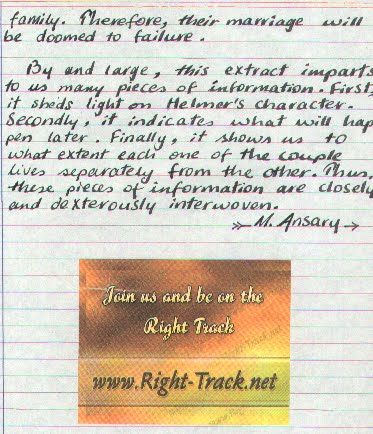 family. Therefore, their marriage will
be doomed to failure.
By and large, this extract imparts
to us many pieces of information. First,
it sheds light on Helmer's character.
Secondly, it indicates what will hap
pen later. Finally, it shows us to
what extent each one of the couple
lives separately from the other. Thus,
these pieces of information are closely
and dexterously interwoven.
M. Ansary
Join us and be on the
Right Track
www.Right-Track.net